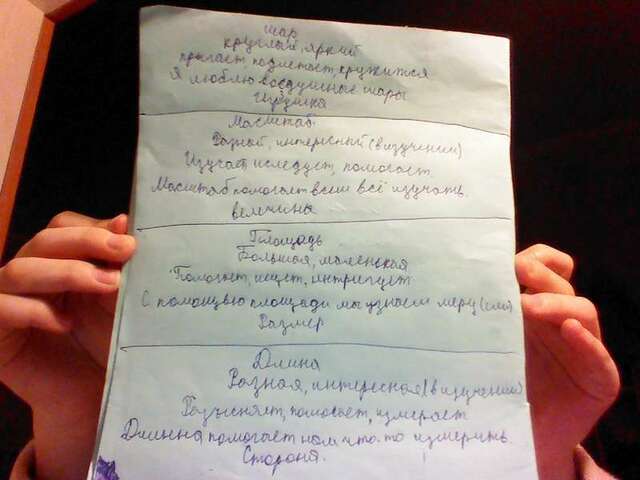 шар
круглый, яркий
прыгает, подлетает, кружится
Я люблю воздушные шары
Игрушка
Масштаб.
Разный, интересный (в изучении)
Изучает, иследует, помогает.
Масштаб помогает всем всё изучать.
величина
Площадь
Большая, маленькая
Помогает, ищет, интригует
С помощью площади мы узнаем меру
Размер
Длина
Разная, интересная (в изучении)
помогает, измеряет
Длинна помогает нам что-то измерить.
Сторона.